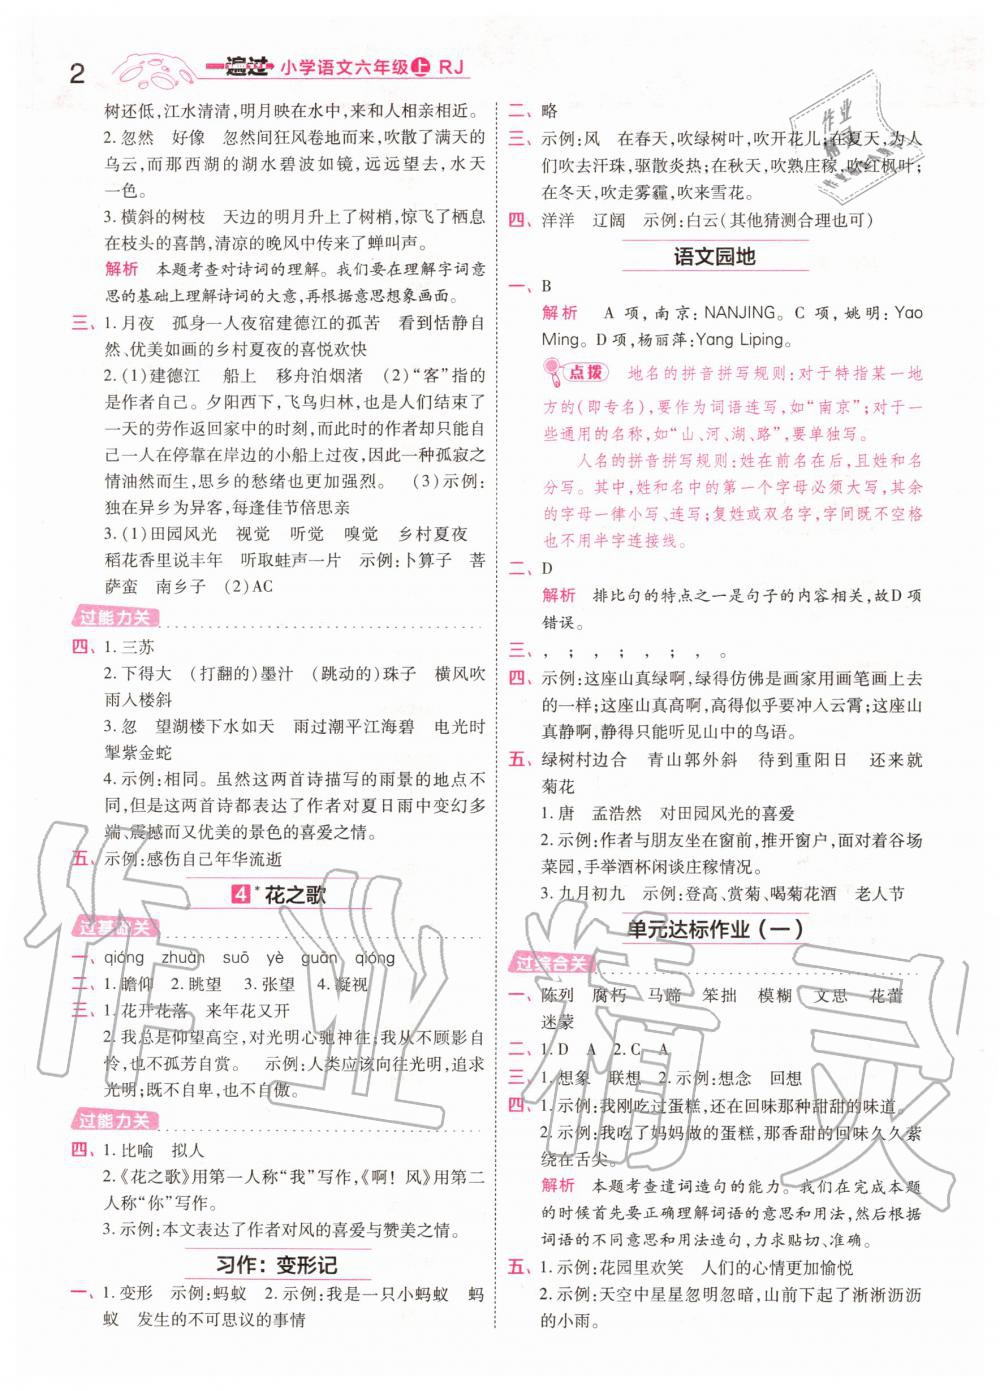 2 一遍过 小学语文六年级 上 RJ
树还低,江水清清,明月映在水中,来和人相亲相近。
2. 忽然 好像 忽然间狂风卷地而来,吹散了满天的
乌云,而那西湖的湖水碧波如镜,远远望去,水天
一色。
3. 横斜的树枝 天边的明月升上了树梢,惊飞了栖息
在枝头的喜鹊,清凉的晚风中传来了蝉叫声。
解析 本题考查对诗词的理解。我们要在理解字词意
思的基础上理解诗词的大意,再根据意思想象画面。
三、1. 月夜 孤身一人夜宿建德江的孤苦 看到恬静自
然、优美如画的乡村夏夜的喜悦欢快
2. (1)建德江 船上 移舟泊烟渚 (2)“客”指的
是作者自己。夕阳西下,飞鸟归林,也是人们结束了
一天的劳作返回家中的时刻,而此时的作者却只能自
己一人在停靠在岸边的小船上过夜,因此一种孤寂之
情油然而生,思乡的愁绪也更加强烈。 (3)示例:
独在异乡为异客,每逢佳节倍思亲
3. (1)田园风光 视觉 听觉 嗅觉 乡村夏夜
稻花香里说丰年 听取蛙声一片 示例:卜算子 菩
萨蛮 南乡子 (2)AC
过能力关
四、1. 三苏
2. 下得大 (打翻的)墨汁 (跳动的)珠子 横风吹
雨入楼斜
3. 忽 望湖楼下水如天 雨过潮平江海碧 电光时
掣紫金蛇
4. 示例:相同。虽然这两首诗描写的雨景的地点不
同,但是这两首诗都表达了作者对夏日雨中变幻多
端、震撼而又优美的景色的喜爱之情。
五、示例:感伤自己年华流逝
4* 花之歌
过基础关
一、qióng zhuàn suō yè guān qióng
二、1. 瞻仰 2. 眺望 3. 张望 4. 凝视
三、1. 花开花落 来年花又开
2. 我总是仰望高空,对光明心驰神往;我从不顾影自
怜,也不孤芳自赏。 示例:人类应该向往光明,追求
光明;既不自卑,也不自傲。
过能力关
四、1. 比喻 拟人
2.《花之歌》用第一人称“我”写作,《啊!风》用第二
人称“你”写作。
3. 示例:本文表达了作者对风的喜爱与赞美之情。
习作：变形记
一、1. 变形 示例:蚂蚁 示例:我是一只小蚂蚁 蚂
蚁 发生的不可思议的事情
二、略
三、示例:风 在春天,吹绿树叶,吹开花儿;在夏天,为人
们吹去汗珠,驱散炎热;在秋天,吹熟庄稼,吹红枫叶;
在冬天,吹走雾霾,吹来雪花。
四、洋洋 辽阔 示例:白云(其他猜测合理也可)
语文园地
一、B
解析 A 项,南京:NANJING。C 项,姚明:Yao
Ming。D 项,杨丽萍:Yang Liping。
点拨 地名的拼音拼写规则:对于特指某一地
方的(即专名),要作为词语连写,如“南京”;对于一
些通用的名称,如“山、河、湖、路”,要单独写。
人名的拼音拼写规则:姓在前名在后,且姓和名
分写。其中,姓和名中的第一个字母必须大写,其余
的字母一律小写、连写;复姓或双名字,字间既不空格
也不用半字连接线。
二、D
解析 排比句的特点之一是句子的内容相关,故D项
错误。
三、, ; , ; , ; , 。
四、示例:这座山真绿啊,绿得仿佛是画家用画笔画上去
的一样;这座山真高啊,高得似乎要冲入云霄;这座山
真静啊,静得只能听见山中的鸟语。
五、绿树村边合 青山郭外斜 待到重阳日 还来就
菊花
1. 唐 孟浩然 对田园风光的喜爱
2. 示例:作者与朋友坐在窗前,推开窗户,面对着谷场
菜园,手举酒杯闲谈庄稼情况。
3. 九月初九 示例:登高、赏菊、喝菊花酒 老人节
单元达标作业（一）
过综合关
一、陈列 腐朽 马蹄 笨拙 模糊 文思 花蕾
迷蒙
二、1. D A 2. C A
三、1. 想象 联想 2. 示例:想念 回想
四、1. 示例:我刚吃过蛋糕,还在回味那种甜甜的味道。
2. 示例:我吃了妈妈做的蛋糕,那香甜的回味久久萦
绕在舌尖。
解析 本题考查遣词造句的能力。我们在完成本题
的时候首先要正确理解词语的意思和用法,然后根据
词语的意思和用法造句,力求贴切、准确。
五、1. 示例:花园里欢笑 人们的心情更加愉悦
2. 示例:天空中星星忽明忽暗,山前下起了淅淅沥沥
的小雨。
作业精灵